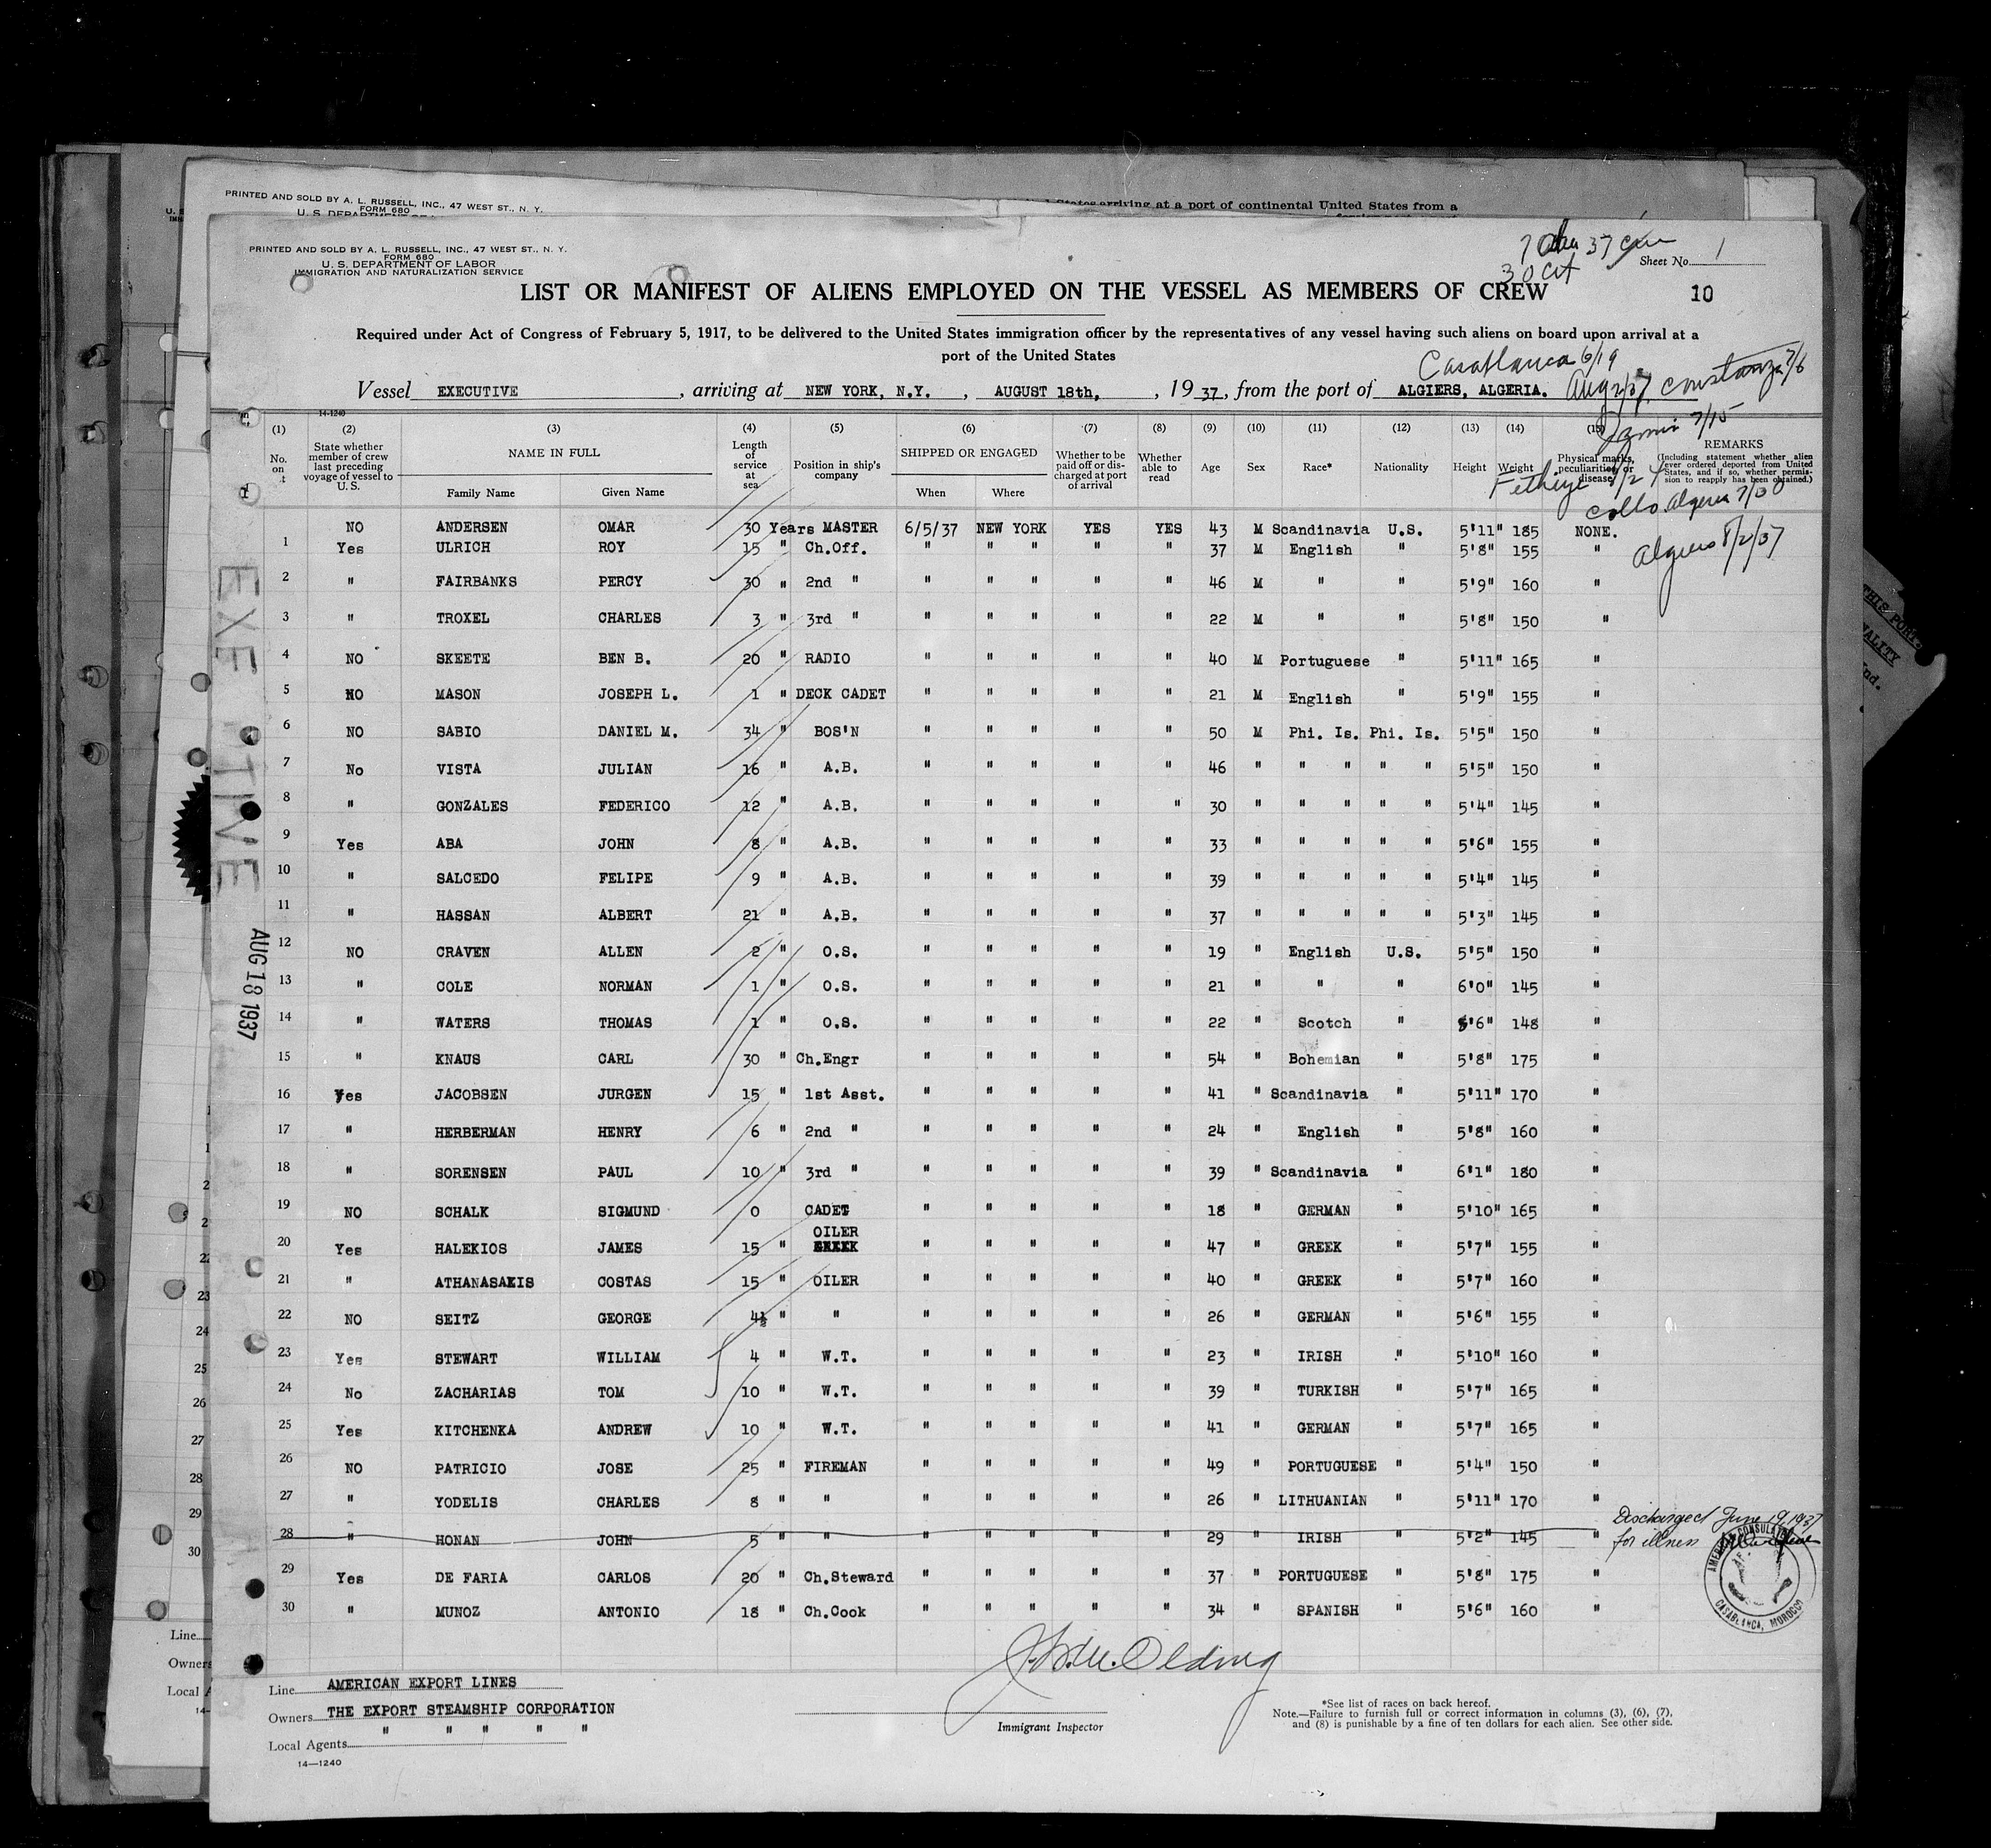 PRINTED AND SOLD BY A. L. RUSSELL, INC., 47 WEST ST., N. Y.
FORM 680
U. S. DEPARTMENT
States arriving at a port of continental United States from a
PRINTED AND SOLD BY A. L. RUSSELL, INC., 47 WEST ST., N. Y.
FORM 680
U. S. DEPARTMENT OF LABOR
IMMIGRATION AND NATURALIZATION SERVICE
Sheet No. 1
30 Cit
LIST OR MANIFEST OF ALIENS EMPLOYED ON THE VESSEL AS MEMBERS OF CREW
10
Required under Act of Congress of February 5, 1917, to be delivered to the United States immigration officer by the representatives of any vessel having such aliens on board upon arrival at a
port of the United States
Casablanca 6/19
Vessel EXECUTIVE, arriving at NEW YORK, N.Y., AUGUST 18th, , 19 37, from the port of ALGIERS, ALGERIA. Aug 2/37. Constanza 7/6
7/15
14-1240
(1) (2) (3) (4) (5) (6) (7) (8) (9) (10) (11) (12) (13) (14) (15) REMARKS
No. on State whether member of crew last preceding voyage of vessel to U. S. NAME IN FULL Family Name Given Name Length of service at sea Position in ship's company SHIPPED OR ENGAGED When Where Whether to be paid off or discharged at port of arrival Whether able to read Age Sex Race* Nationality Height Weight Physical marks, peculiarities, or disease (Including statement whether alien ever ordered deported from United States, and if so, whether permission to reapply has been obtained.)
Fethiye 7/24
Collo Algeria 7/30
NO ANDERSEN OMAR 30 Years MASTER 6/5/37 NEW YORK YES YES 43 M Scandinavia U.S. 5'11" 185 NONE.
1 Yes ULRICH ROY 15 " Ch.Off. " " " " " 37 M English " 5'8" 155 " Algiers 8/2/37
2 " FAIRBANKS PERCY 30 " 2nd " " " " " " 46 M " " 5'9" 160 "
3 " TROXEL CHARLES 3 " 3rd " " " " " " 22 M " " 5'8" 150 "
4 NO SKEETE BEN B. 20 " RADIO " " " " " 40 M Portuguese " 5'11" 165 "
5 NO MASON JOSEPH L. 1 " DECK CADET " " " " " 21 M English " 5'9" 155 "
6 NO SABIO DANIEL M. 34 " BOS'N " " " " " 50 M Phi. Is. Phi. Is. 5'5" 150 "
7 No VISTA JULIAN 16 " A.B. " " " " " 46 " " " " " 5'5" 150 "
8 " GONZALES FEDERICO 12 " A.B. " " " " " 30 " " " " " 5'4" 145 "
9 Yes ABA JOHN 8 " A.B. " " " " " 33 " " " " " 5'6" 155 "
10 " SALCEDO FELIPE 9 " A.B. " " " " " 39 " " " " " 5'4" 145 "
11 " HASSAN ALBERT 21 " A.B. " " " " " 37 " " " " " 5'3" 145 "
12 NO CRAVEN ALLEN 2 " O.S. " " " " " 19 " English U.S. 5'5" 150 "
13 " COLE NORMAN 1 " O.S. " " " " " 21 " " " 6'0" 145 "
14 " WATERS THOMAS 1 " O.S. " " " " " 22 " Scotch " 5'6" 148 "
15 " KNAUS CARL 30 " Ch.Engr " " " " " 54 " Bohemian " 5'8" 175 "
16 Yes JACOBSEN JURGEN 15 " 1st Asst. " " " " " 41 " Scandinavia " 5'11" 170 "
17 " HERBERMAN HENRY 6 " 2nd " " " " " " 24 " English " 5'8" 160 "
18 " SORENSEN PAUL 10 " 3rd " " " " " " 39 " Scandinavia " 6'1" 180 "
19 NO SCHALK SIGMUND 0 CADET " " " " " 18 " GERMAN " 5'10" 165 "
20 Yes HALEKIOS JAMES 15 " OILER " " " " " 47 " GREEK " 5'7" 155 "
21 " ATHANASAKIS COSTAS 15 " OILER " " " " " 40 " GREEK " 5'7" 160 "
22 NO SEITZ GEORGE 4½ " " " " " " " 26 " GERMAN " 5'6" 155 "
23 Yes STEWART WILLIAM 4 " W.T. " " " " " 23 " IRISH " 5'10" 160 "
24 No ZACHARIAS TOM 10 " W.T. " " " " " 39 " TURKISH " 5'7" 165 "
25 Yes KITCHENKA ANDREW 10 " W.T. " " " " " 41 " GERMAN " 5'7" 165 "
26 NO PATRICIO JOSE 25 " FIREMAN " " " " " 49 " PORTUGUESE " 5'4" 150 "
27 " YODELIS CHARLES 8 " " " " " " " 26 " LITHUANIAN " 5'11" 170 "
28 " HONAN JOHN 5 " " " " " " " 29 " IRISH " 5'2" 145 " Discharged June 19, 1937 for illness
29 Yes DE FARIA CARLOS 20 " Ch.Steward " " " " " 37 " PORTUGUESE " 5'8" 175 "
30 " MUNOZ ANTONIO 18 " Ch.Cook " " " " " 34 " SPANISH " 5'6" 160 "
AMERICAN CONSULATE
CASABLANCA, MOROCCO
EXE TIVE
AUG 18 1937
Line AMERICAN EXPORT LINES
Owners THE EXPORT STEAMSHIP CORPORATION
" " " " "
Local Agents
14—1240
Immigrant Inspector
*See list of races on back hereof.
Note.—Failure to furnish full or correct information in columns (3), (6), (7),
and (8) is punishable by a fine of ten dollars for each alien. See other side.
Line
Owners
Local
23
24
25
26
27
28
29
30
THIS PORT.